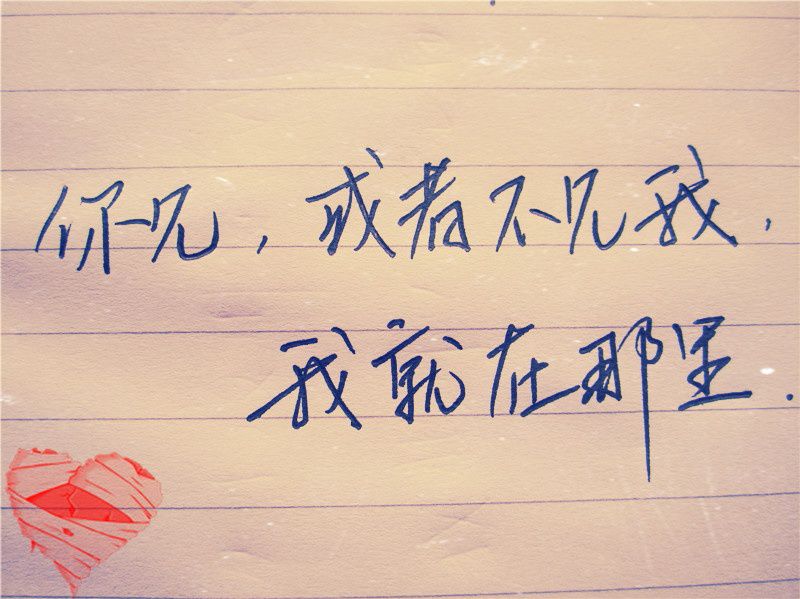 你见，或者不见我，
我就在那里.